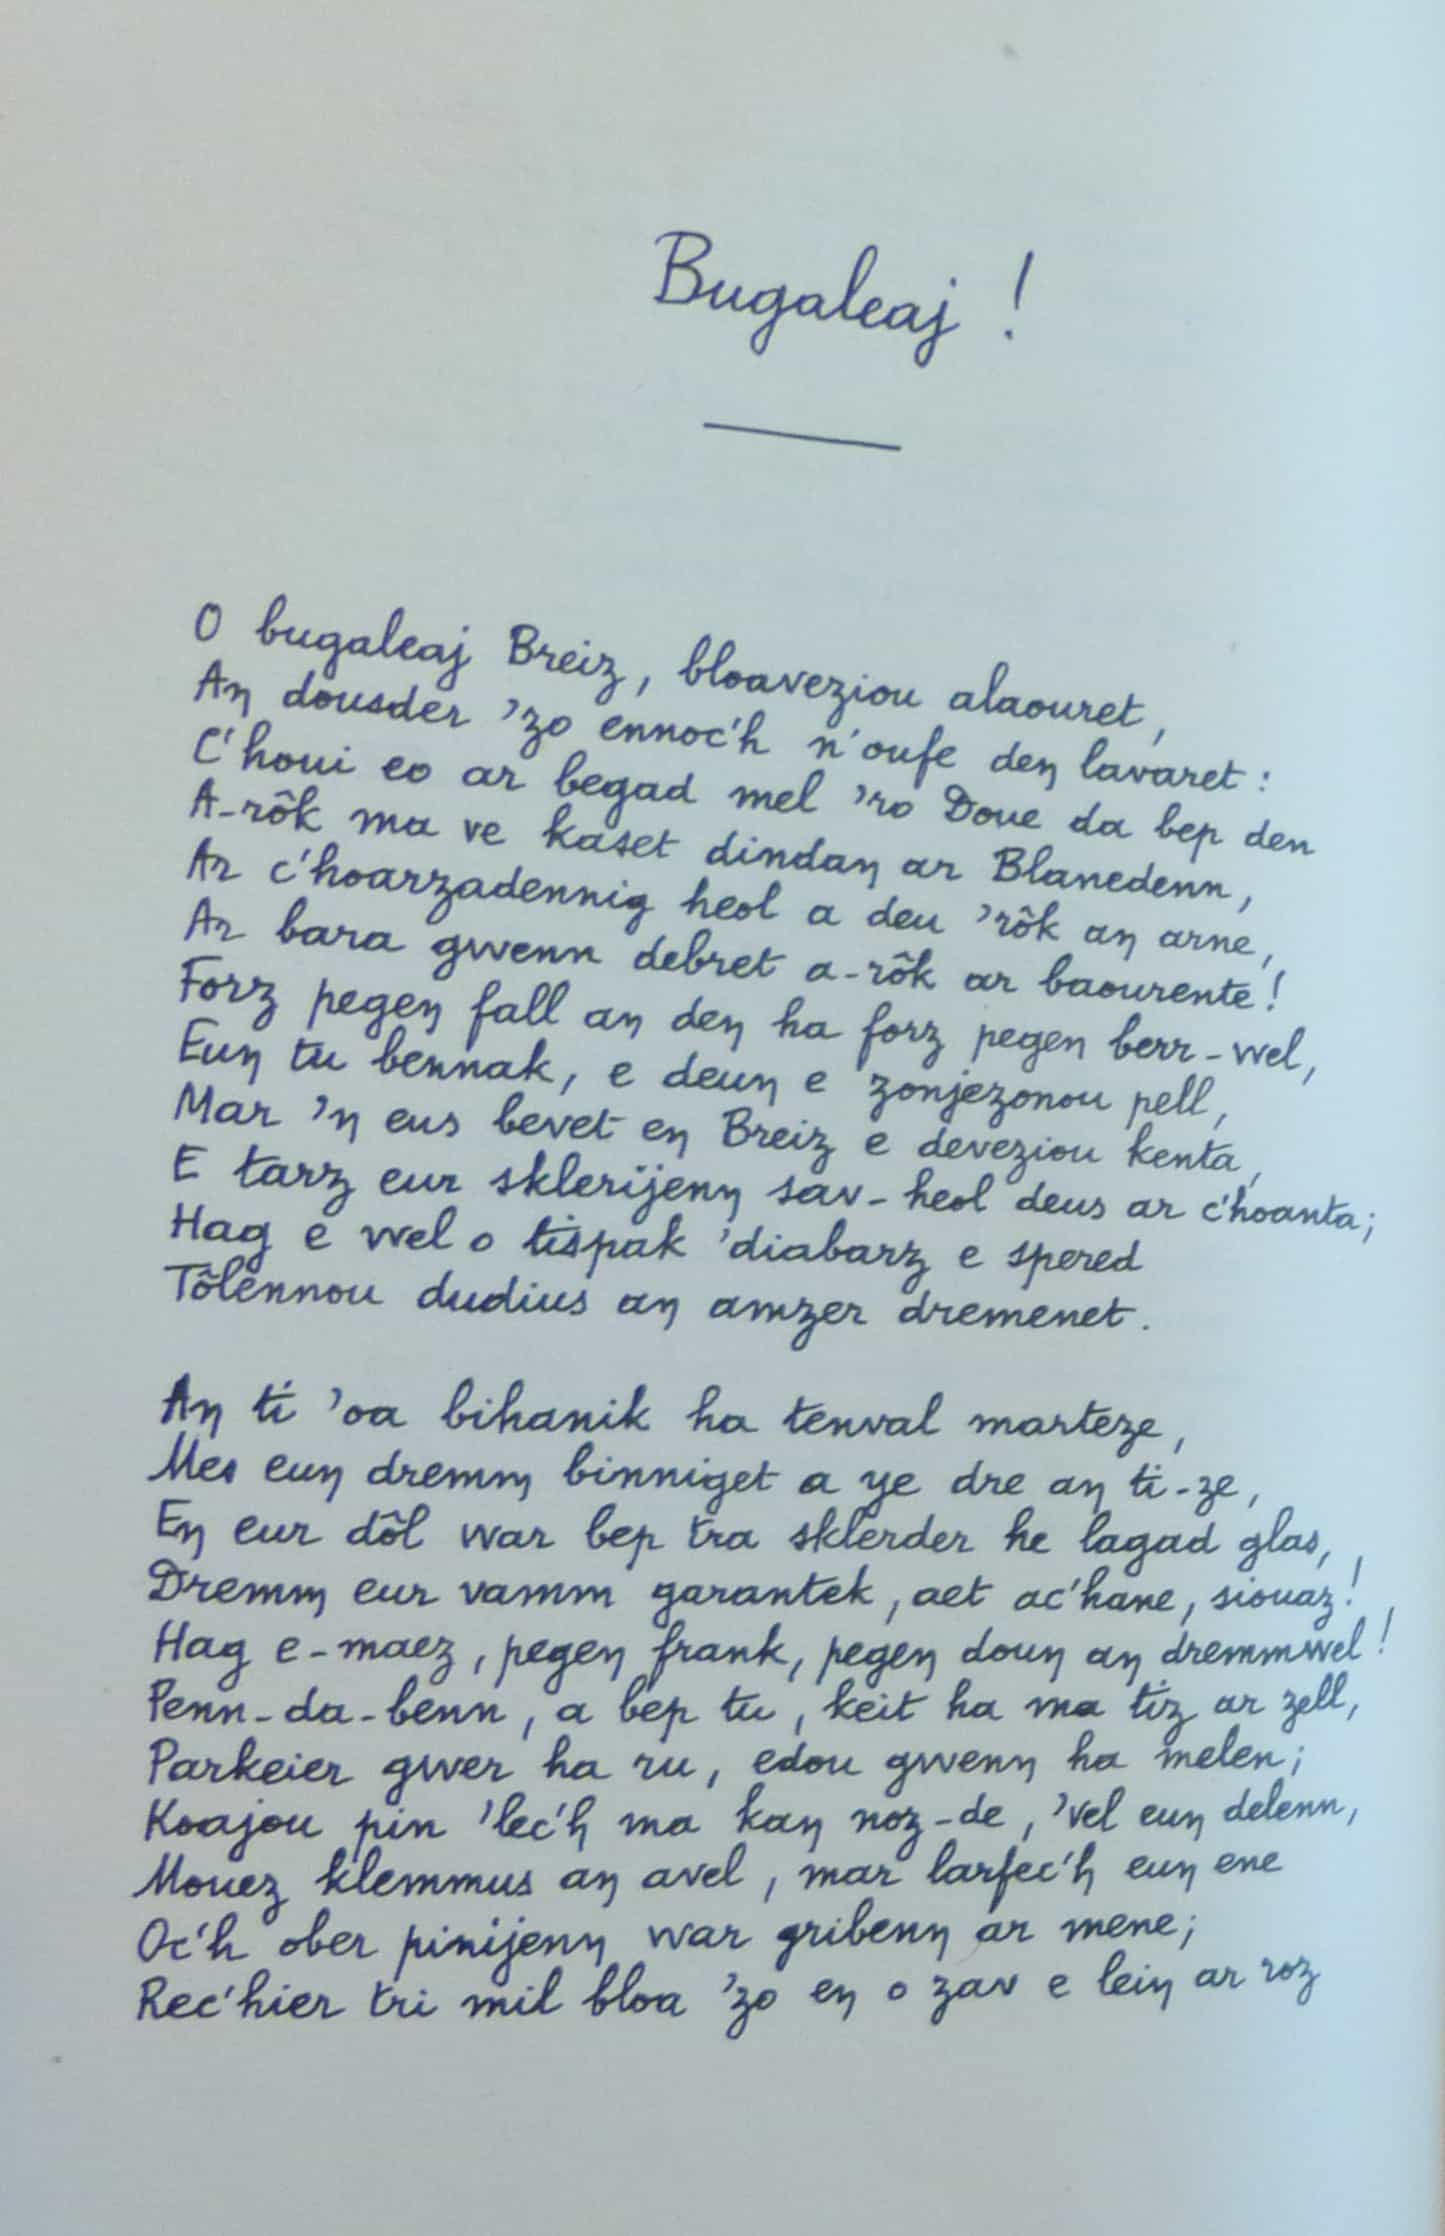 Bugaleaj !
O bugaleaj Breiz, bloaveziou alaouret,
Aŋ dousder 'zo ennoc'h n'oufe deŋ lavaret :
C'houi eo ar begad mel 'ro Doue da bep den
A-rôk ma ve kaset dindaŋ ar Blanedenn,
Ar c'hoarzadennig heol a deu 'rôk aŋ arne,
Ar bara gwenn debret a-rôk ar baourente !
Forz pegeŋ fall aŋ deŋ ha forz pegen berr-wel,
Euŋ tu bennak, e deuŋ e zonjezonou pell,
Mar 'ŋ eus bevet eŋ Breiz e deveziou kenta,
E tarz eur sklerijenŋ sav-heol deus ar c'hoanta ;
Hag e wel o tispak 'diabarz e spered
Tôlennou dudius aŋ amzer dremenet.
Aŋ ti 'oa bihanik ha tenval marteze,
Mes euŋ dremmŋ binniget a ye dre aŋ ti-ze,
Eŋ eur dôl war bep tra sklerder he lagad glas,
Dremmŋ eur vamm garantek, aet ac'hane, siouaz !
Hag e-maez, pegeŋ frank, pegeŋ douŋ aŋ dremmwel !
Penn-da-benn, a bep tu, keit ha ma tiz ar zell,
Parkeier gwer ha ru, edou gwenŋ ha melen ;
Koajou pin 'lec'h ma kaŋ noz-de, 'vel euŋ delenn,
Mouez klemmus aŋ avel, mar larfec'h euŋ ene
Oc'h ober pinijenŋ war gribenŋ ar mene ;
Rec'hier tri mil bloa 'zo eŋ o zav e leiŋ ar roz